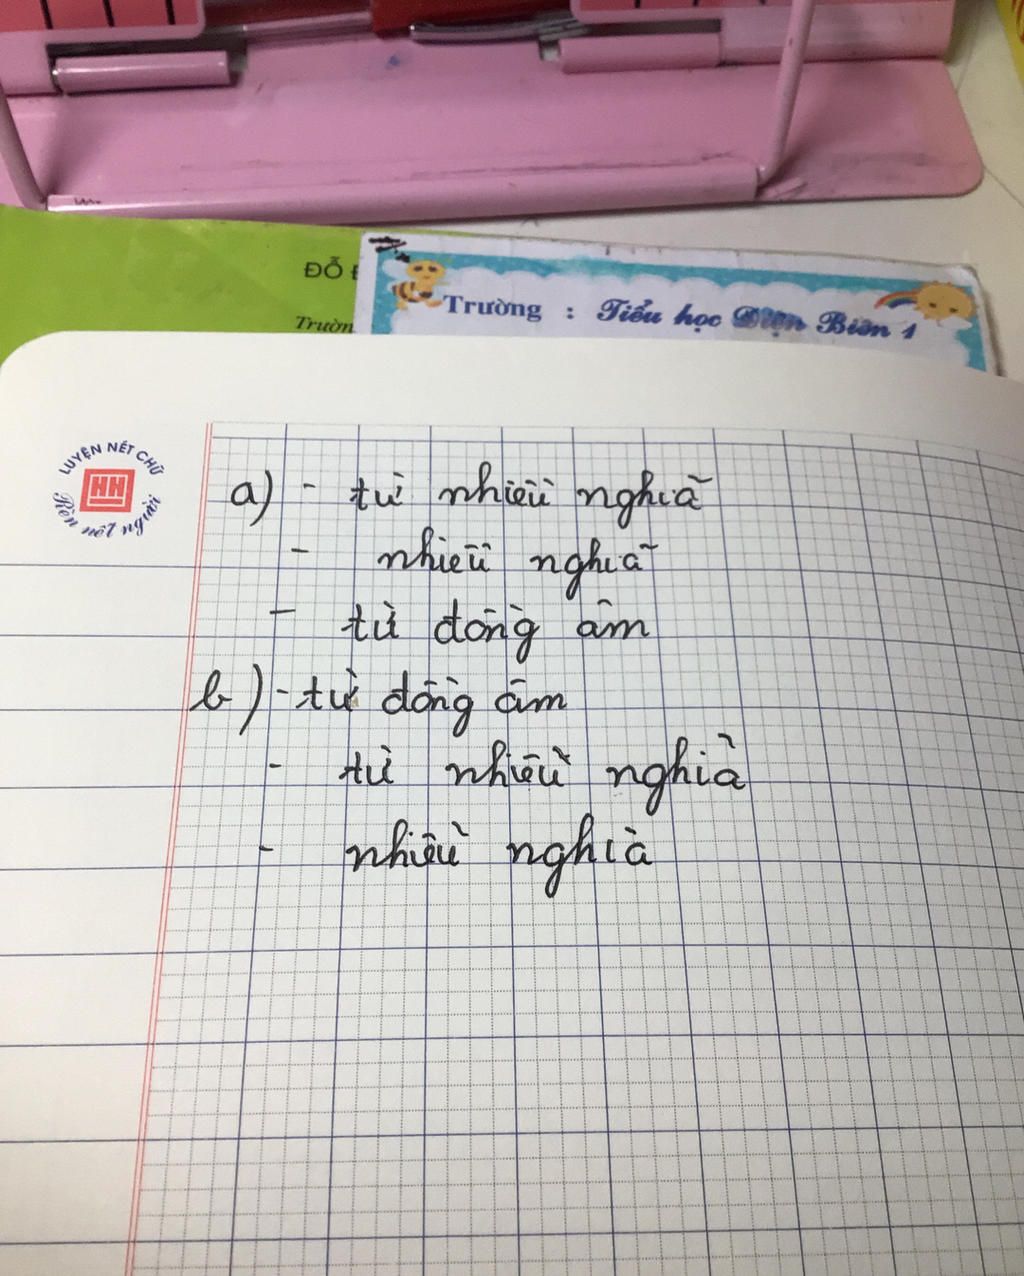 ĐỖ
Trườn
Trường : Tiểu học Điện Biên 1
LUYỆN NÉT CHỮ
HH
Rèn nết người
a) - từ nhiều nghĩa
- nhiều nghĩa
- từ đồng âm
b) - từ đồng âm
- từ nhiều nghĩa
- nhiều nghĩa